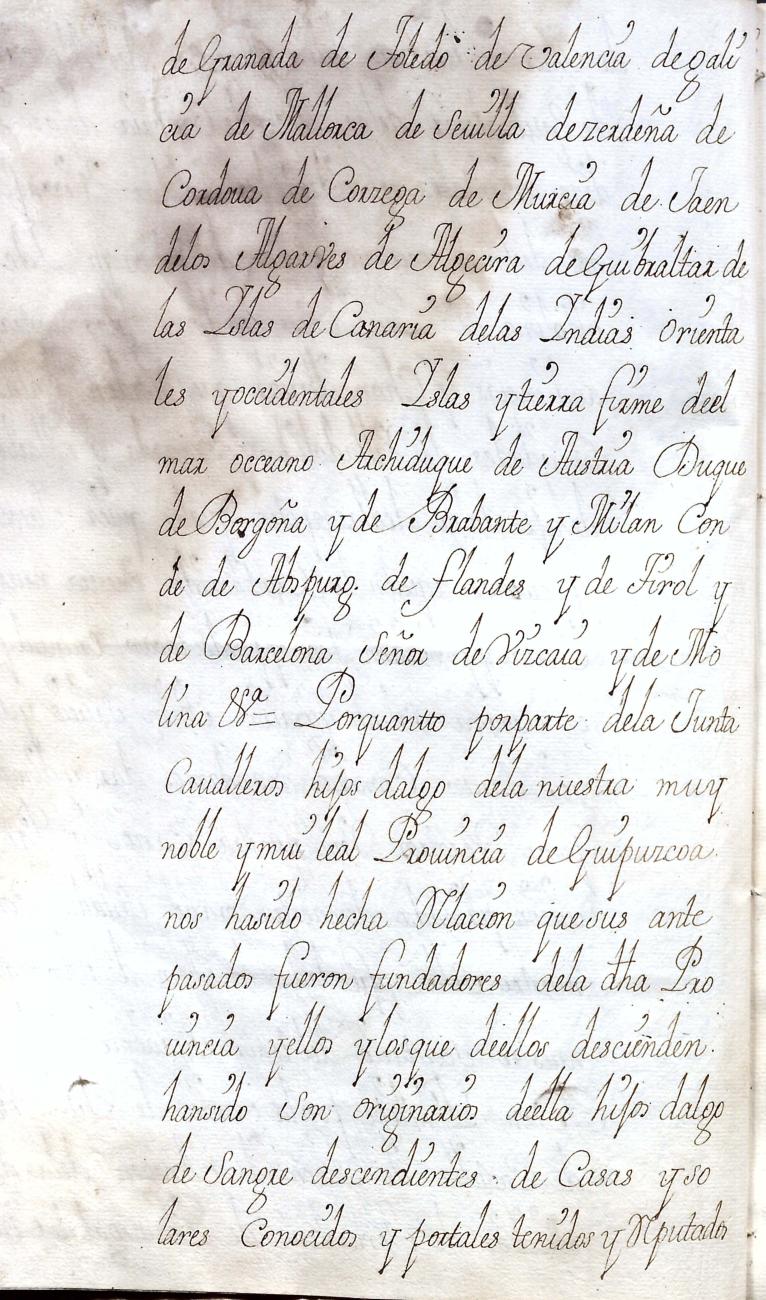 de Granada de Toledo de Valencia de gali
cia de Mallorca de Seuilla de zerdeña de
Cordoua de Corzega de Murcia de Jaen
delos Algarves de Algecira de Guibraltar de
las Yslas de Canaria delas Yndias orienta
les y occidentales Yslas y tierra firme deel
mar occeano Archiduque de Austria Duque
de Borgoña y de Brabante y Milan Con
de de Abspurg. de flandes y de Tirol y
de Barcelona Señor de Vizcaia y de Mo
lina &ª Porquantto por parte dela Junta
Caualleros hijos dalgo dela nuestra muy
noble y mui leal Prouincia de Guipuzcoa
nos hasido hecha Relacion que sus ante
pasados fueron fundadores dela dha Pro
uincia y ellos y los que deellos descienden
hansido son originarios deella hijos dalgo
de Sangre descendientes de Casas y so
lares Conocidos y por tales tenidos y Reputados